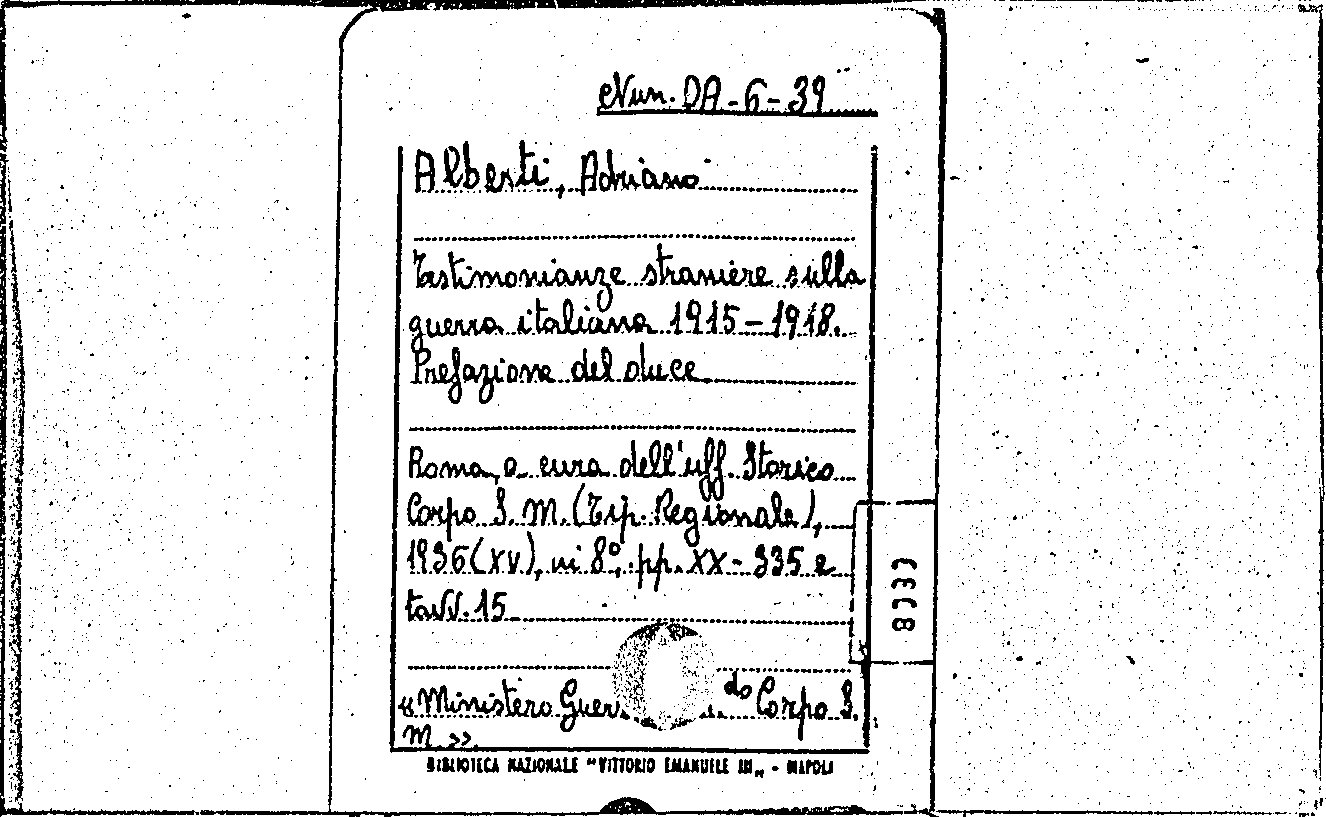 Nun. DA-6-39
Alberti, Adriano
Testimonianze straniere sulla
guerra italiana 1915-1918.
Prefazione del duce
Roma, a cura dell'uff. Storico
Corpo S. M. (Tip. Regionale),
1936 (XV), in 8°, pp. XX-335 e
tavv. 15
«Ministero Guer do Corpo S.
M.»
BIBLIOTECA NAZIONALE "VITTORIO EMANUELE III„ - NAPOLI